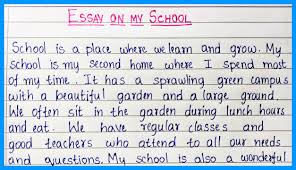 ESSAY ON MY SCHOOL
School is a place where we learn and grow. My
school is my second home where I spend most
of my time. It has a sprawling green campus
with a beautiful garden and a large ground.
We often sit in the garden during lunch hours
and eat. We have regular classes and
good teachers who attend to all our needs
and questions. My school is also a wonderful